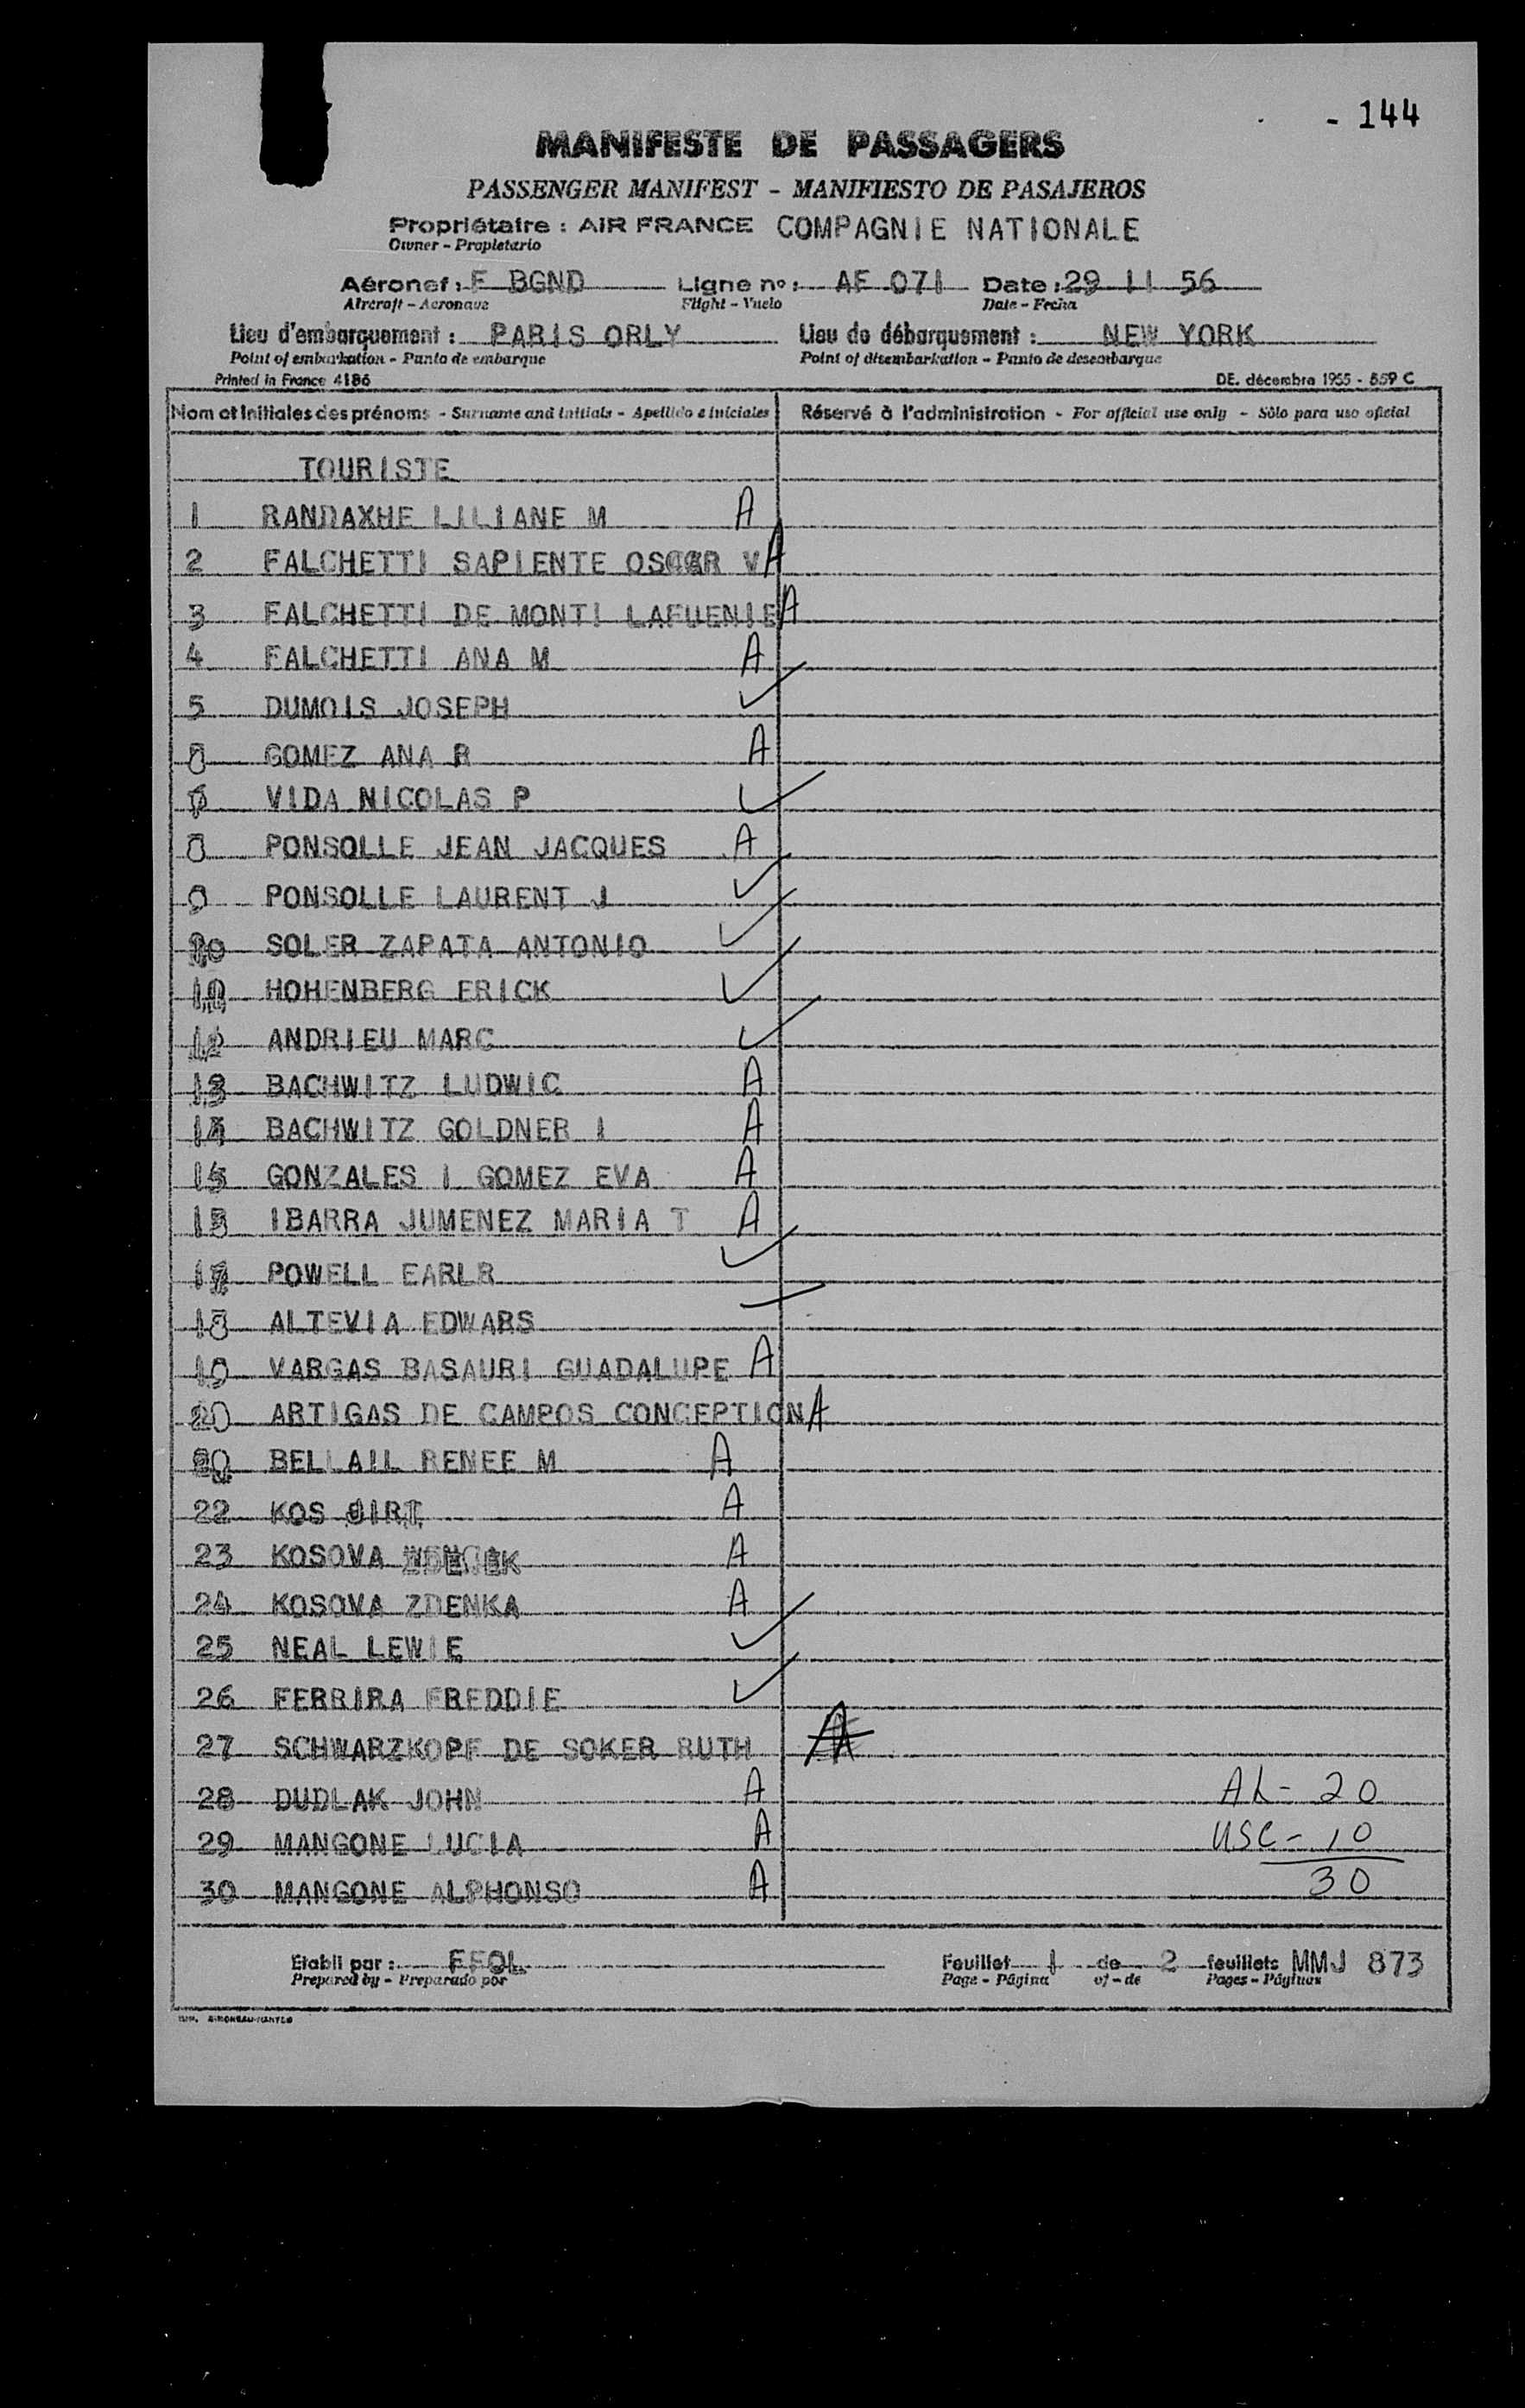 - 144
MANIFESTE DE PASSAGERS
PASSENGER MANIFEST - MANIFIESTO DE PASAJEROS
Propriétaire : AIR FRANCE COMPAGNIE NATIONALE
Owner - Propietario
Aéronef : F BGND Ligne nº : AF 071 Date : 29 11 56
Aircraft - Aeronave Flight - Vuelo Date - Fecha
Lieu d'embarquement : PARIS ORLY Lieu de débarquement : NEW YORK
Point of embarkation - Punto de embarque Point of disembarkation - Punto de desembarque
Printed in France 4186 DE. décembre 1955 - 559 C
Nom et Initiales des prénoms - Surname and initials - Apellido e iniciales Réservé à l'administration - For official use only - Sólo para uso oficial
TOURISTE
1 RANDAXHE LILIANE M A
2 FALCHETTI SAPIENTE OSCAR V A
3 FALCHETTI DE MONTI LAFUENIE A
4 FALCHETTI ANA M A
5 DUMOIS JOSEPH ✓
GOMEZ ANA R A
VIDA NICOLAS P ✓
8 PONSOLLE JEAN JACQUES A
9 PONSOLLE LAURENT J ✓
10 SOLER ZAPATA ANTONIO ✓
HOHENBERG ERICK ✓
12 ANDRIEU MARC ✓
13 BACHWITZ LUDWIC A
14 BACHWITZ GOLDNER I A
15 GONZALES I GOMEZ EVA A
IBARRA JUMENEZ MARIA T A
17 POWELL EARLR ✓
18 ALTEVIA EDWARS ✓
19 VARGAS BASAURI GUADALUPE A
20 ARTIGAS DE CAMPOS CONCEPTION A
BELLAIL RENEE M A
22 KOS JIRI A
23 KOSOVA A
24 KOSOVA ZDENKA A
25 NEAL LEWIE ✓
26 FERRIRA FREDDIE ✓
27 SCHWARZKOPF DE SOKER RUTH A
28 DUDLAK JOHN A AL - 20
29 MANGONE LUCIA A USC - 10
30 MANGONE ALPHONSO A 30
Etabli par : FFOL Feuillet 1 de 2 feuillets MMJ 873
Prepared by - Preparado por Page - Página of - de Pages - Páginas